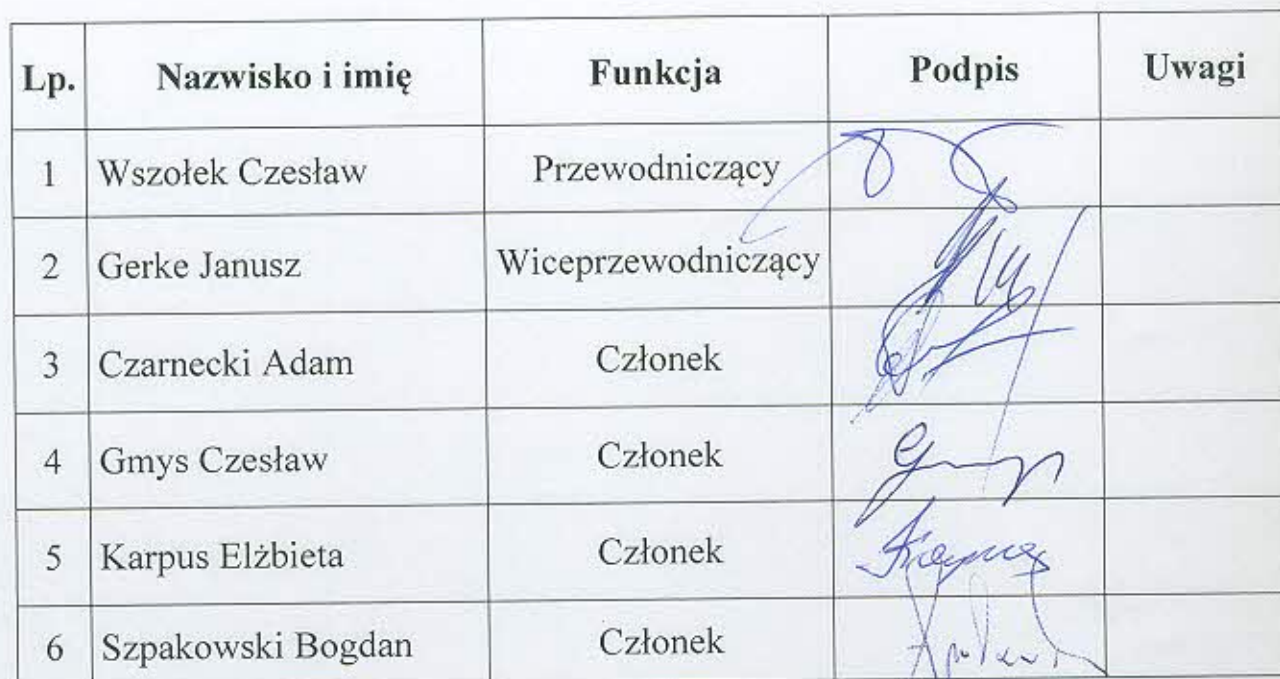 Lp. Nazwisko i imię Funkcja Podpis Uwagi
1 Wszołek Czesław Przewodniczący
2 Gerke Janusz Wiceprzewodniczący
3 Czarnecki Adam Członek
4 Gmys Czesław Członek
5 Karpus Elżbieta Członek
6 Szpakowski Bogdan Członek